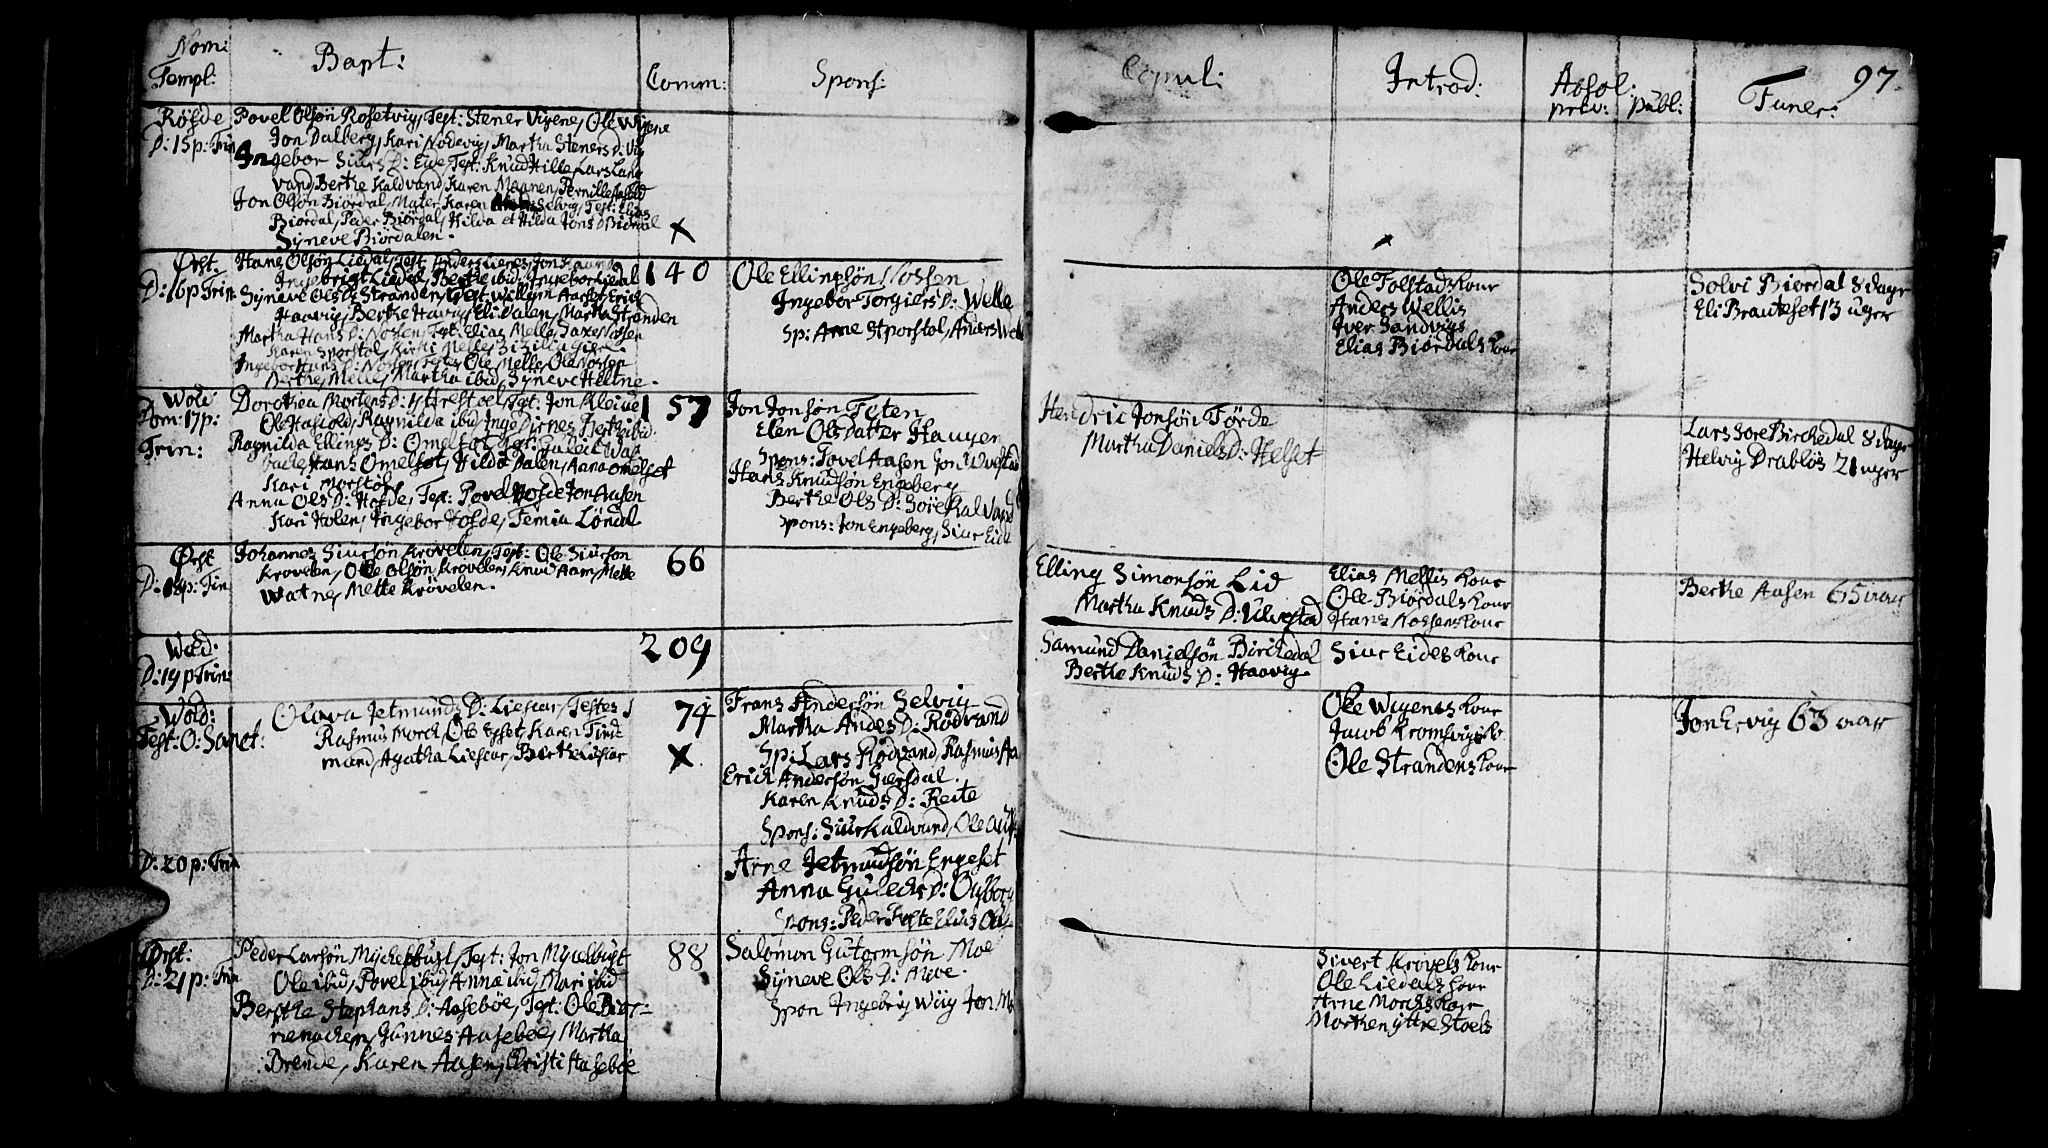 Nom:
Templ:
Bapt:
Comm:
Spons:
Copul:
Introd:
Absol:
priv: publ:
Funer:
97
Røfde
D: 15 p: Trin
Povel Olsøn Rosetvig, Test: Stener Vigene, Ole Wigene
Jon Dalberg, Kari Nodevig, Martha Steners D: Vig
Ingebor Siurs D: Eide, Test: Knud Hille Lars Lang
vand, Berthe Kaldvand, Karen Maanen, Pernille
Jon Olsøn Biordal, Mater Karen Selvig, Test: Elias
Biordal, Peder Biørdal, Hilda et Hilda Jons D Biørdal
Syneve Biørdalen.
x
Ørst.
D: 16 p Trin.
Hans Olsøn Liedal, Test Anders Lienes, Jon
Ingebrigt Liedal, Berthe ibid, Ingebor Liedal
Syneve Ols D: Stranden, Test Willum Aarset, Erich
Haavig, Berthe Havig, Eli Dalen, Martha Stranden
Martha Hans D: Nossen, Test: Elias Melle, Saxe Nossen
Karen Sporstøl, Kirsti Melle,
Ingebor Hans D: Nossen, Test: Ole Melle, Ole Nossen
Berthe Melle, Martha ibid, Syneve Hellne.
140
Ole Ellingsøn Nossen
Ingebor Torgiers D: Welle
Sp: Arne Sporstøl, Anders Well
Ole Folstads Kone
Anders Wellis
Iver Sandvigs
Elias Biørdals kone
Solvi Biordal 8 dage
Eli Brauteset 13 uger
Wold
Dom: 17 p:
Trin:
Dorothea Mortens D: Ytrestoel, Test: Jon Kleive
Ole Hasfold, Ragnilda ibid, Inge Dirnes, Berthe ibid.
Ragnilda Ellings D: Omelfot, Test: Guleck Wat
Hans Omelfot, Hilda Dalen, Aana Omelfot
Kari Morstøl
Anna Ols D: Hofde, Test: Povel Hofde Jon Aasen
Kari Holen, Ingebor Hofde, Femia Løndal
157
Jon Jonsøn Foten
Elen Olsdatter Haugen
Spons: Povel Aasen Jon Ulvestad
Hans Knudsøn Engeberg
Berthe Ols D: Sore Kalvand
Spons: Jon Engeberg, Siur Eide
Hendric Jonsøn Førde
Martha Daniels D: Helset
Lars Sore Birchedal 8 dage
Helvig Drabløs 21 uger
Ørst
D: 18 p: Trin
Johannes Siursøn Krøvelen, Test: Ole Siursøn
Krovelen, Ole Olsøn Krøvelen, Knud Aam, Mette
Watne, Mette Krøvelen.
66
Elling Simonsøn Lid
Martha Knuds D: Ulvestad
Elias Mellis Kone
Ole Biørdals Kone
Hans Nossens kone
Berthe Aasen 65 aar
Wold:
D: 19 p Trin:
209
Samund Danielsøn Birchedal
Berthe Knuds D: Haavig
Siur Eides kone
Wold:
Fest: O: Sanct:
Olava Jetmunds D: Lieskar, Testes
Rasmus Morch, Ole Esset, Karen Find
mand, Agatha Lieskar, Berthe Lieskar
74
x
Frans Andersøn Selvig
Martha Andes D: Rodvand
Sp: Lars Rødvand, Rasmus Aa
Erick Andersøn Giersdal.
Karen Knuds D: Reite
Spons: Siur Kaldvand, Ole
Ole Wigenes kone
Jacob Kromsvigs k
Ole Strandens kone
Jon Ervig 63 aar
D: 20 p: Trin
Arne Jetmundsøn Engeset
Anna Gulechs D: Øyborg
Spons: Peder Foste Elias
Ørst:
D: 21 p: Trin
Peder Larsøn Myckelbust, Test: Jon Myckelbust
Ole ibid, Povel ibid, Anna ibid, Mari ibid
Berthe Stephans D: Aaseboe, Test: Ole Bier=
rienacken, Gunnes Aaseboe, Martha
Brende, Karen Aasen, Christi Aaseboe
88
Salomon Gutormsøn Moe
Syneve Ols D: Myve.
Spon Ingebrig Wiig Jon M
Sivert Krøvels kone
Ole Liedals kone
Arne Morchs Kone
Morthen Ytrestoels